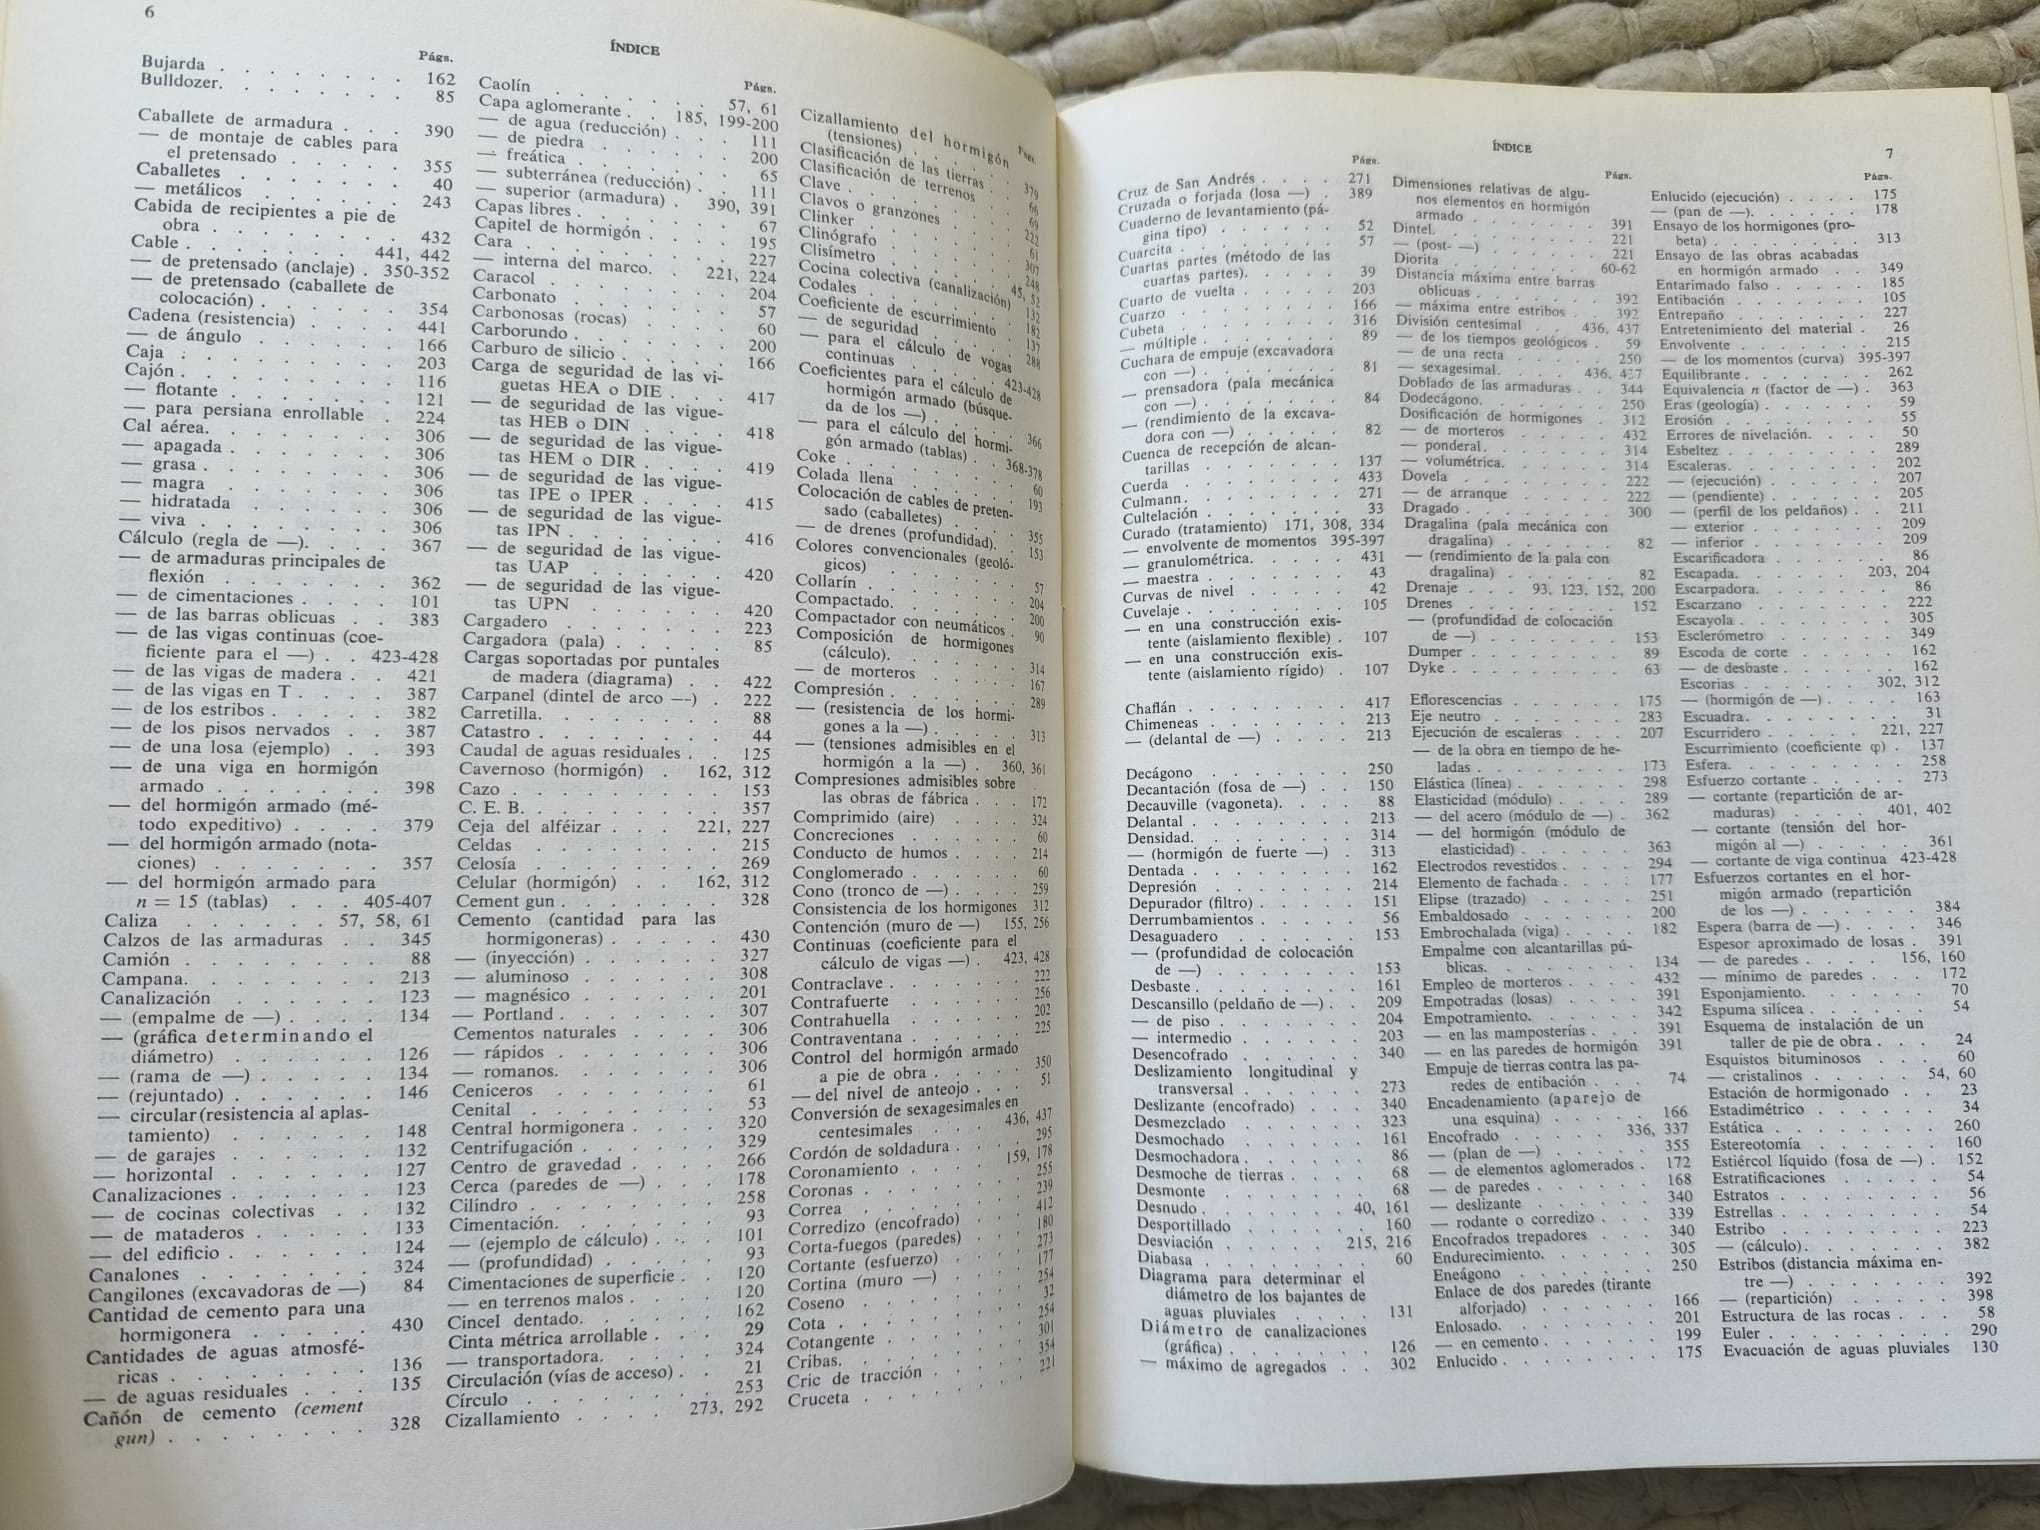 6
ÍNDICE
Págs.
Bujarda . . . . . . . . 162
Bulldozer. . . . . . . . 85
Caballete de armadura . . . 390
— de montaje de cables para
el pretensado . . . . . 355
Caballetes . . . . . . . 40
— metálicos . . . . . . 243
Cabida de recipientes a pie de
obra . . . . . . . . 432
Cable . . . . . . 441, 442
— de pretensado (anclaje) . 350-352
— de pretensado (caballete de
colocación) . . . . . . 354
Cadena (resistencia) . . . . 441
— de ángulo . . . . . . 166
Caja . . . . . . . . . 203
Cajón . . . . . . . . . 116
— flotante . . . . . . . 121
— para persiana enrollable . 224
Cal aérea. . . . . . . . 306
— apagada . . . . . . . 306
— grasa . . . . . . . . 306
— magra . . . . . . . . 306
— hidratada . . . . . . 306
— viva . . . . . . . . 306
Cálculo (regla de —). . . . 367
— de armaduras principales de
flexión . . . . . . . 362
— de cimentaciones . . . . 101
— de las barras oblicuas . . 383
— de las vigas continuas (coe-
ficiente para el —) . . 423-428
— de las vigas de madera . . 421
— de las vigas en T . . . . 387
— de los estribos . . . . . 382
— de los pisos nervados . . 387
— de una losa (ejemplo) . . 393
— de una viga en hormigón
armado . . . . . . . 398
— del hormigón armado (mé-
todo expeditivo) . . . . 379
— del hormigón armado (nota-
ciones) . . . . . . . 357
— del hormigón armado para
n = 15 (tablas) . . . 405-407
Caliza . . . . . . 57, 58, 61
Calzos de las armaduras . . 345
Camión . . . . . . . . 88
Campana. . . . . . . . 213
Canalización . . . . . . 123
— (empalme de —) . . . . 134
— (gráfica determinando el
diámetro) . . . . . . 126
— (rama de —) . . . . . 134
— (rejuntado) . . . . . . 146
— circular (resistencia al aplas-
tamiento) . . . . . . 148
— de garajes . . . . . . 132
— horizontal . . . . . . 127
Canalizaciones . . . . . . 123
— de cocinas colectivas . . 132
— de mataderos . . . . . 133
— del edificio . . . . . . 124
Canalones . . . . . . . 324
Cangilones (excavadoras de —) 84
Cantidad de cemento para una
hormigonera . . . . . 430
Cantidades de aguas atmosfé-
ricas . . . . . . . . 136
— de aguas residuales . . . 135
Cañón de cemento (cement
gun) . . . . . . . . 328
Págs.
Caolín . . . . . . . 57, 61
Capa aglomerante . . 185, 199-200
— de agua (reducción) . . . 111
— de piedra . . . . . . 200
— freática . . . . . . . 65
— subterránea (reducción) . . 111
— superior (armadura) . 390, 391
Capas libres . . . . . . . 67
Capitel de hormigón . . . . 195
Cara . . . . . . . . . 227
— interna del marco. . 221, 224
Caracol . . . . . . . . 204
Carbonato . . . . . . . 57
Carbonosas (rocas) . . . . 60
Carborundo . . . . . . . 200
Carburo de silicio . . . . . 166
Carga de seguridad de las vi-
guetas HEA o DIE . . . 417
— de seguridad de las vigue-
tas HEB o DIN . . . . 418
— de seguridad de las vigue-
tas HEM o DIR . . . . 419
— de seguridad de las vigue-
tas IPE o IPER . . . . 415
— de seguridad de las vigue-
tas IPN . . . . . . . 416
— de seguridad de las vigue-
tas UAP . . . . . . . 420
— de seguridad de las vigue-
tas UPN . . . . . . 420
Cargadero . . . . . . . 223
Cargadora (pala) . . . . . 85
Cargas soportadas por puntales
de madera (diagrama) . . 422
Carpanel (dintel de arco —) . 222
Carretilla. . . . . . . . 88
Catastro . . . . . . . . 44
Caudal de aguas residuales . . 125
Cavernoso (hormigón) . 162, 312
Cazo . . . . . . . . . 153
C. E. B. . . . . . . . . 357
Ceja del alféizar . . . 221, 227
Celdas . . . . . . . . 215
Celosía . . . . . . . . 269
Celular (hormigón) . . 162, 312
Cement gun . . . . . . . 328
Cemento (cantidad para las
hormigoneras) . . . . . 430
— (inyección) . . . . . . 327
— aluminoso . . . . . . 308
— magnésico . . . . . . 201
— Portland . . . . . . . 307
Cementos naturales . . . . 306
— rápidos . . . . . . . 306
— romanos. . . . . . . 306
Ceniceros . . . . . . . 61
Cenital . . . . . . . . 53
Central hormigonera . . . . 320
Centrifugación . . . . . . 329
Centro de gravedad . . . . 266
Cerca (paredes de —) . . . 178
Cilindro . . . . . . . . 258
Cimentación. . . . . . . 93
— (ejemplo de cálculo) . . . 101
— (profundidad) . . . . . 93
Cimentaciones de superficie . . 120
— en terrenos malos . . . . 120
Cincel dentado. . . . . . 162
Cinta métrica arrollable . . . 29
— transportadora. . . . . 324
Circulación (vías de acceso) . . 21
Círculo . . . . . . . . 253
Cizallamiento . . . . 273, 292
Págs.
Cizallamiento del hormigón
(tensiones) . . . . . . 379
Clasificación de las tierras . . 66
Clasificación de terrenos . . 69
Clave . . . . . . . . 222
Clavos o granzones . . . . 61
Clinker . . . . . . . . 307
Clinógrafo . . . . . . . 248
Clisímetro . . . . . . 45, 52
Cocina colectiva (canalización) 132
Codales . . . . . . . . 182
Coeficiente de escurrimiento 137
— de seguridad . . . . . 288
— para el cálculo de vogas
continuas . . . . . 423-428
Coeficientes para el cálculo de
hormigón armado (búsque-
da de los —) . . . . . 366
— para el cálculo del hormi-
gón armado (tablas) . . 368-378
Coke . . . . . . . . . 60
Colada llena . . . . . . 193
Colocación de cables de preten-
sado (caballetes) . . . . 355
— de drenes (profundidad). . 153
Colores convencionales (geoló-
gicos) . . . . . . . . 57
Collarín . . . . . . . . 204
Compactado. . . . . . . 200
Compactador con neumáticos . 90
Composición de hormigones
(cálculo). . . . . . . 314
— de morteros . . . . . 167
Compresión . . . . . . . 289
— (resistencia de los hormi-
gones a la —) . . . . . 313
— (tensiones admisibles en el
hormigón a la —) . 360, 361
Compresiones admisibles sobre
las obras de fábrica . . . 172
Comprimido (aire) . . . . 324
Concreciones . . . . . . 60
Conducto de humos . . . . 214
Conglomerado . . . . . . 60
Cono (tronco de —) . . . . 259
Consistencia de los hormigones 312
Contención (muro de —) 155, 256
Continuas (coeficiente para el
cálculo de vigas —) . 423, 428
Contraclave . . . . . . . 222
Contrafuerte . . . . . . 256
Contrahuella . . . . . . 202
Contraventana . . . . . . 225
Control del hormigón armado
a pie de obra . . . . . 350
— del nivel de anteojo . . . 51
Conversión de sexagesimales en
centesimales . . . . 436, 437
Cordón de soldadura . . . . 295
Coronamiento . . . . 159, 178
Coronas . . . . . . . . 255
Correa . . . . . . . . 239
Corredizo (encofrado) . . . 412
Corta-fuegos (paredes) . . . 180
Cortante (esfuerzo) . . . . 273
Cortina (muro —) . . . . 177
Coseno . . . . . . . . 254
Cota . . . . . . . . . 32
Cotangente . . . . . . . 254
Cribas. . . . . . . . . 301
Cric de tracción . . . . . 354
Cruceta . . . . . . . . 221
ÍNDICE
7
Págs.
Cruz de San Andrés . . . . 271
Cruzada o forjada (losa —) . 389
Cuaderno de levantamiento (pá-
gina tipo) . . . . . . 52
Cuarcita . . . . . . . . 57
Cuartas partes (método de las
cuartas partes). . . . . 39
Cuarto de vuelta . . . . . 203
Cuarzo . . . . . . . . 166
Cubeta . . . . . . . . 316
— múltiple . . . . . . . 89
Cuchara de empuje (excavadora
con —) . . . . . . . 81
— prensadora (pala mecánica
con —) . . . . . . . 84
— (rendimiento de la excava-
dora con —) . . . . . 82
Cuenca de recepción de alcan-
tarillas . . . . . . . 137
Cuerda . . . . . . . . 433
Culmann. . . . . . . . 271
Cultelación . . . . . . . 33
Curado (tratamiento) 171, 308, 334
— envolvente de momentos 395-397
— granulométrica. . . . . 431
— maestra . . . . . . . 43
Curvas de nivel . . . . . 42
Cuvelaje . . . . . . . . 105
— en una construcción exis-
tente (aislamiento flexible) . 107
— en una construcción exis-
tente (aislamiento rígido) . 107
Chaflán . . . . . . . . 417
Chimeneas . . . . . . . 213
— (delantal de —) . . . . 213
Decágono . . . . . . . 250
Decantación (fosa de —) . . 150
Decauville (vagoneta). . . . 88
Delantal . . . . . . . . 213
Densidad. . . . . . . . 314
— (hormigón de fuerte —) . 313
Dentada . . . . . . . . 162
Depresión . . . . . . . 214
Depurador (filtro) . . . . . 151
Derrumbamientos . . . . . 56
Desaguadero . . . . . . 153
— (profundidad de colocación
de —) . . . . . . . . 153
Desbaste . . . . . . . . 161
Descansillo (peldaño de —) . . 209
— de piso . . . . . . . 204
— intermedio . . . . . . 203
Desencofrado . . . . . . 340
Deslizamiento longitudinal y
transversal . . . . . . 273
Deslizante (encofrado) . . . 340
Desmezclado . . . . . . 323
Desmochado . . . . . . 161
Desmochadora . . . . . . 86
Desmoche de tierras . . . . 68
Desmonte . . . . . . . 68
Desnudo . . . . . . 40, 161
Desportillado . . . . . . 160
Desviación . . . . . 215, 216
Diabasa . . . . . . . . 60
Diagrama para determinar el
diámetro de los bajantes de
aguas pluviales . . . . 131
Diámetro de canalizaciones
(gráfica) . . . . . . . 126
— máximo de agregados . . 302
Págs.
Dimensiones relativas de algu-
nos elementos en hormigón
armado . . . . . . . 391
Dintel. . . . . . . . . 221
— (post- —) . . . . . . 221
Diorita . . . . . . . 60-62
Distancia máxima entre barras
oblicuas . . . . . . . 392
— máxima entre estribos . . 392
División centesimal . . 436, 437
— de los tiempos geológicos . 59
— de una recta . . . . . 250
— sexagesimal. . . . 436, 437
Doblado de las armaduras . . 344
Dodecágono. . . . . . . 250
Dosificación de hormigones . 312
— de morteros . . . . . 432
— ponderal . . . . . . . 314
— volumétrica. . . . . . 314
Dovela . . . . . . . . 222
— de arranque . . . . . 222
Dragado . . . . . . . . 300
Dragalina (pala mecánica con
dragalina) . . . . . . 82
— (rendimiento de la pala con
dragalina) . . . . . . 82
Drenaje . . . 93, 123, 152, 200
Drenes . . . . . . . . 152
— (profundidad de colocación
de —) . . . . . . . . 153
Dumper . . . . . . . . 89
Dyke . . . . . . . . . 63
Eflorescencias . . . . . . 175
Eje neutro . . . . . . . 283
Ejecución de escaleras . . . 207
— de la obra en tiempo de he-
ladas . . . . . . . . 173
Elástica (línea) . . . . . . 298
Elasticidad (módulo) . . . . 289
— del acero (módulo de —) . 362
— del hormigón (módulo de
elasticidad) . . . . . . 363
Electrodos revestidos . . . . 294
Elemento de fachada . . . . 177
Elipse (trazado) . . . . . 251
Embaldosado . . . . . . 200
Embrochalada (viga) . . . . 182
Empalme con alcantarillas pú-
blicas. . . . . . . . 134
Empleo de morteros . . . . 432
Empotradas (losas) . . . . 391
Empotramiento. . . . . . 342
— en las mamposterías . . . 391
— en las paredes de hormigón 391
Empuje de tierras contra las pa-
redes de entibación . . . 74
Encadenamiento (aparejo de
una esquina) . . . . . 166
Encofrado . . . . . 336, 337
— (plan de —) . . . . . 355
— de elementos aglomerados . 172
— de paredes . . . . . . 168
— deslizante . . . . . . 340
— rodante o corredizo . . . 339
Encofrados trepadores . . . 340
Endurecimiento. . . . . . 305
Eneágono . . . . . . . 250
Enlace de dos paredes (tirante
alforjado) . . . . . . 166
Enlosado. . . . . . . . 201
— en cemento . . . . . . 199
Enlucido . . . . . . . . 175
Págs.
Enlucido (ejecución) . . . . 175
— (pan de —). . . . . . 178
Ensayo de los hormigones (pro-
beta) . . . . . . . . 313
Ensayo de las obras acabadas
en hormigón armado . . 349
Entarimado falso . . . . . 185
Entibación . . . . . . . 105
Entrepaño . . . . . . . 227
Entretenimiento del material . 26
Envolvente . . . . . . . 215
— de los momentos (curva) 395-397
Equilibrante . . . . . . . 262
Equivalencia n (factor de —) . 363
Eras (geología) . . . . . . 59
Erosión . . . . . . . . 55
Errores de nivelación. . . . 50
Esbeltez . . . . . . . . 289
Escaleras. . . . . . . . 202
— (ejecución) . . . . . . 207
— (pendiente) . . . . . . 205
— (perfil de los peldaños) . . 211
— exterior . . . . . . . 209
— inferior . . . . . . . 209
Escarificadora . . . . . . 86
Escapada. . . . . . 203, 204
Escarpadora. . . . . . . 86
Escarzano . . . . . . . 222
Escayola . . . . . . . . 305
Esclerómetro . . . . . . 349
Escoda de corte . . . . . 162
— de desbaste . . . . . . 162
Escorias . . . . . . 302, 312
— (hormigón de —) . . . . 163
Escuadra. . . . . . . . 31
Escurridero . . . . . 221, 227
Escurrimiento (coeficiente φ) . 137
Esfera. . . . . . . . . 258
Esfuerzo cortante . . . . . 273
— cortante (repartición de ar-
maduras) . . . . . 401, 402
— cortante (tensión del hor-
migón al —) . . . . . 361
— cortante de viga continua 423-428
Esfuerzos cortantes en el hor-
migón armado (repartición
de los —) . . . . . . 384
Espera (barra de —) . . . . 346
Espesor aproximado de losas . 391
— de paredes . . . . 156, 160
— mínimo de paredes . . . 172
Esponjamiento. . . . . . 70
Espuma silícea . . . . . . 54
Esquema de instalación de un
taller de pie de obra . . . 24
Esquistos bituminosos . . . 60
— cristalinos . . . . . 54, 60
Estación de hormigonado . . 23
Estadimétrico . . . . . . 34
Estática . . . . . . . . 260
Estereotomía . . . . . . 160
Estiércol líquido (fosa de —) . 152
Estratificaciones . . . . . 54
Estratos . . . . . . . . 56
Estrellas . . . . . . . . 54
Estribo . . . . . . . . 223
— (cálculo). . . . . . . 382
Estribos (distancia máxima en-
tre —) . . . . . . . 392
— (repartición) . . . . . 398
Estructura de las rocas . . . 58
Euler . . . . . . . . . 290
Evacuación de aguas pluviales 130